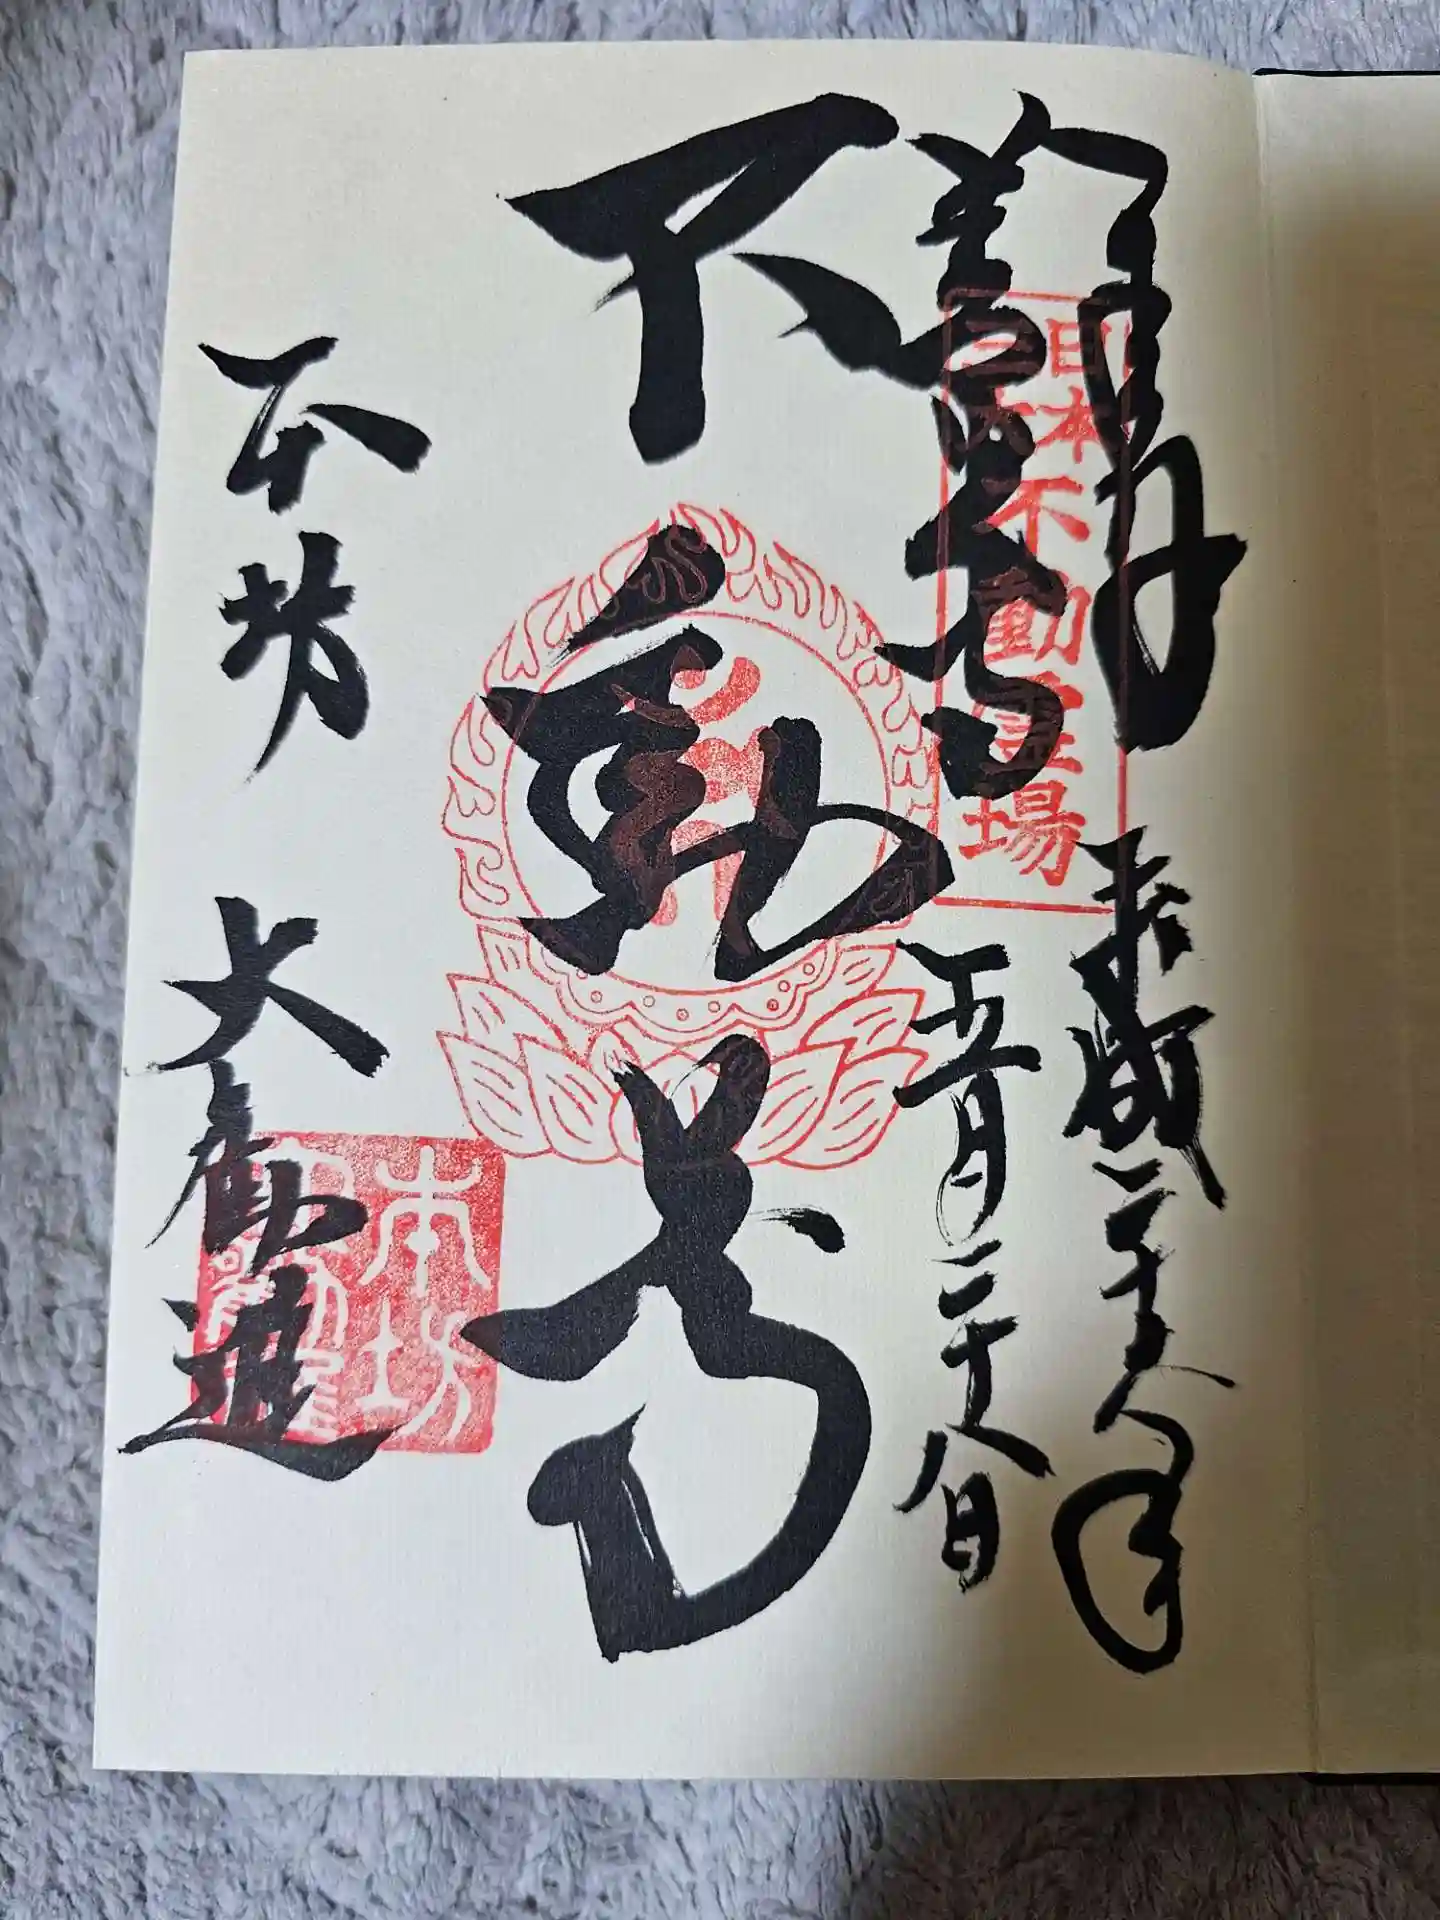 平成二十八年
善光寺
五月二十八日
日本三大不動霊場
不動尊
本坊 大勧進
本坊